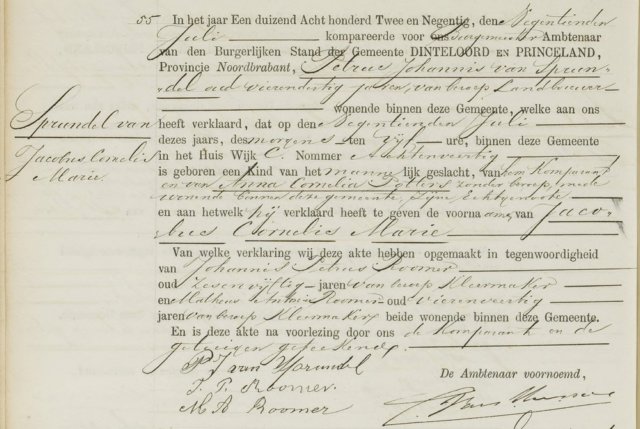 55 In het jaar Een duizend Acht honderd Twee en Negentig, den Negentienden
Juli kompareerde voor ons Burgemeester Ambtenaar
van den Burgerlijken Stand der Gemeente DINTELOORD EN PRINCELAND,
Provincie Noordbrabant, Petrus Johannis van Sprun-
del oud vierendertig jaren, van beroep Landbouwer
wonende binnen deze Gemeente, welke aan ons
Sprundel van
heeft verklaard, dat op den Negentienden Juli
dezes jaars, des morgens ten vijf ure, binnen deze Gemeente
Jacobus Cornelis
in het Huis Wijk C. Nommer Achtenveertig
Marie.
is geboren een Kind van het mannelijk geslacht, van hem Komparant
en van Anna Cornelia Potters zonder beroep, mede
wonende binnen deze gemeente, zijne Echtgenoote
en aan hetwelk hij verklaard heeft te geven de voornamen, van Jaco-
bus Cornelis Marie
Van welke verklaring wij deze akte hebben opgemaakt in tegenwoordigheid
van Johannis Petrus Roomer
oud Zesenvijftig jaren van beroep Kleermaker
en Matheus Antonie Roomer oud vierenveertig
jaren van beroep Kleermaker beide wonende binnen deze Gemeente.
En is deze akte na voorlezing door ons de Komparant en de
getuigen geteekend.
P. J. van Sprundel
J. P. Roomer.
De Ambtenaar voornoemd,
M A Roomer